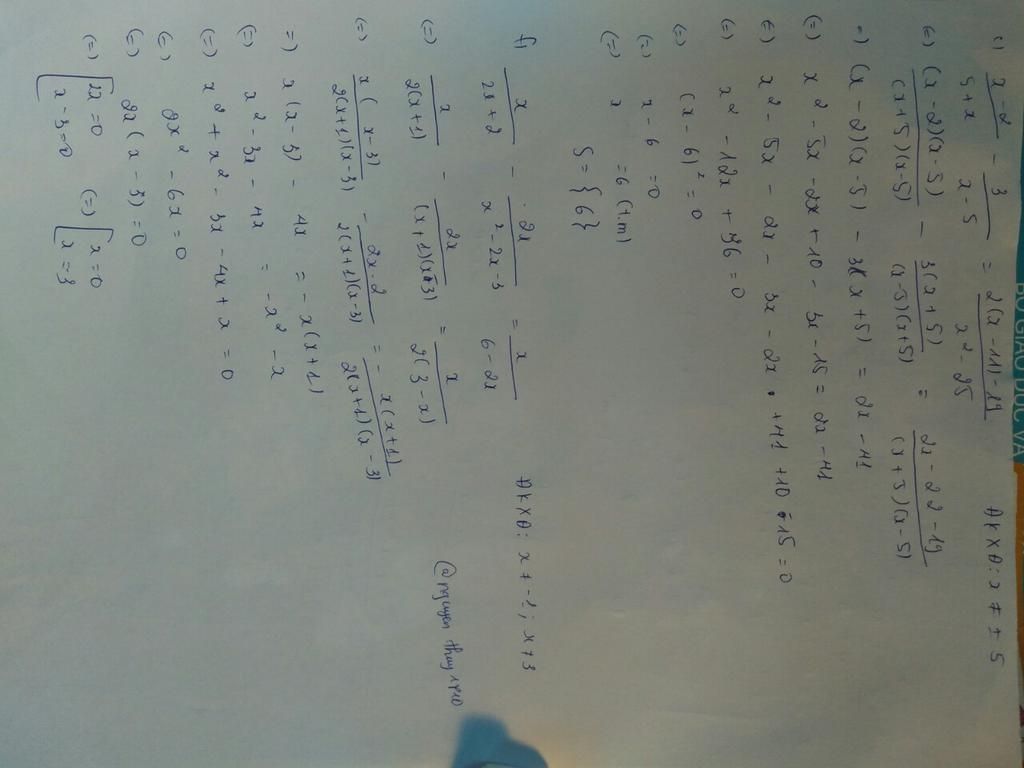 c) \frac{x-2}{5+x} - \frac{3}{x-5} = \frac{2(x-11)-19}{x^2-25} ĐKXĐ: x ≠ ±5
(=) \frac{(x-2)(x-5)}{(x+5)(x-5)} - \frac{3(x+5)}{(x-5)(x+5)} = \frac{2x-22-19}{(x+5)(x-5)}
=) (x-2)(x-5) - 3(x+5) = 2x - 41
(=) x^2 - 5x - 2x + 10 - 3x - 15 = 2x - 41
(=) x^2 - 5x - 2x - 3x - 2x + 41 + 10 - 15 = 0
(=) x^2 - 12x + 36 = 0
(=) (x-6)^2 = 0
(=) x - 6 = 0
(=) x = 6 (t.m)
S = {6}
f) \frac{x}{2x+2} - \frac{2x}{x^2-2x-3} = \frac{x}{6-2x} ĐKXĐ: x ≠ -1; x ≠ 3
(=) \frac{x}{2(x+1)} - \frac{2x}{(x+1)(x-3)} = \frac{x}{2(3-x)}
@nguyen thuy
(=) \frac{x(x-3)}{2(x+1)(x-3)} - \frac{2x.2}{2(x+1)(x-3)} = -\frac{x(x+1)}{2(x+1)(x-3)}
=) x(x-3) - 4x = -x(x+1)
(=) x^2 - 3x - 4x = -x^2 - x
(=) x^2 + x^2 - 3x - 4x + x = 0
(=) 2x^2 - 6x = 0
(=) 2x(x-3) = 0
(=) [2x = 0 (=) [x = 0
x - 3 = 0 x = 3